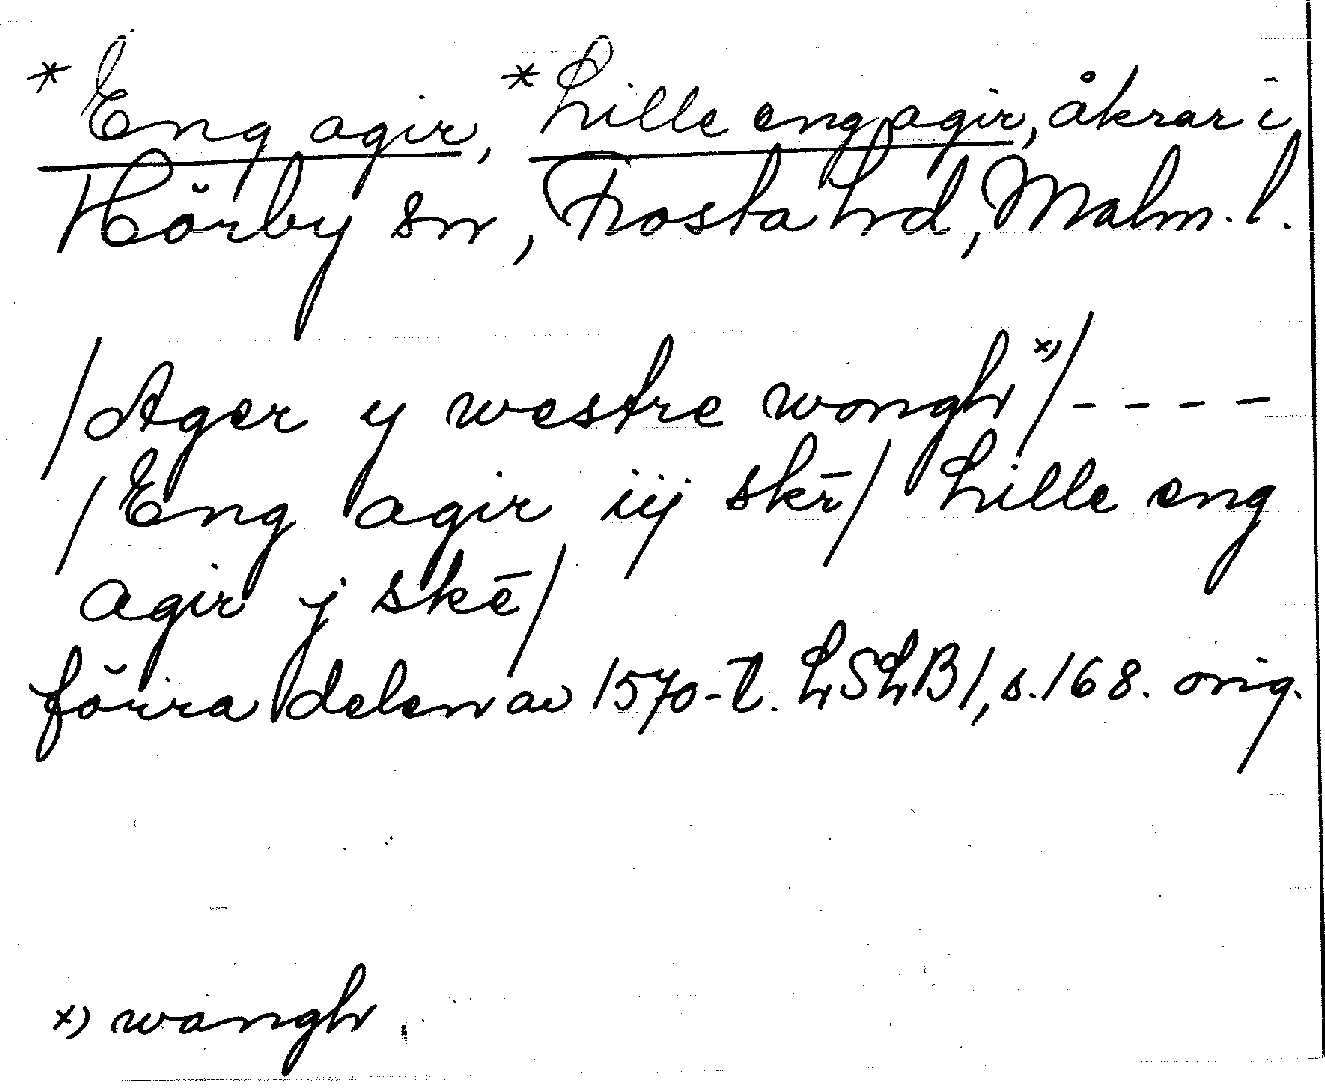 * Eng agir, * Lille eng agir, åkrar i
Hörby sn, Frosta hd, Malm. l.
/Ager y westre wongh x)/ - - - -
/Eng agir iij skē/ Lille eng
agir j skē/
förra delen av 1570-t. LSLB1, s. 168. orig.
x) wangh